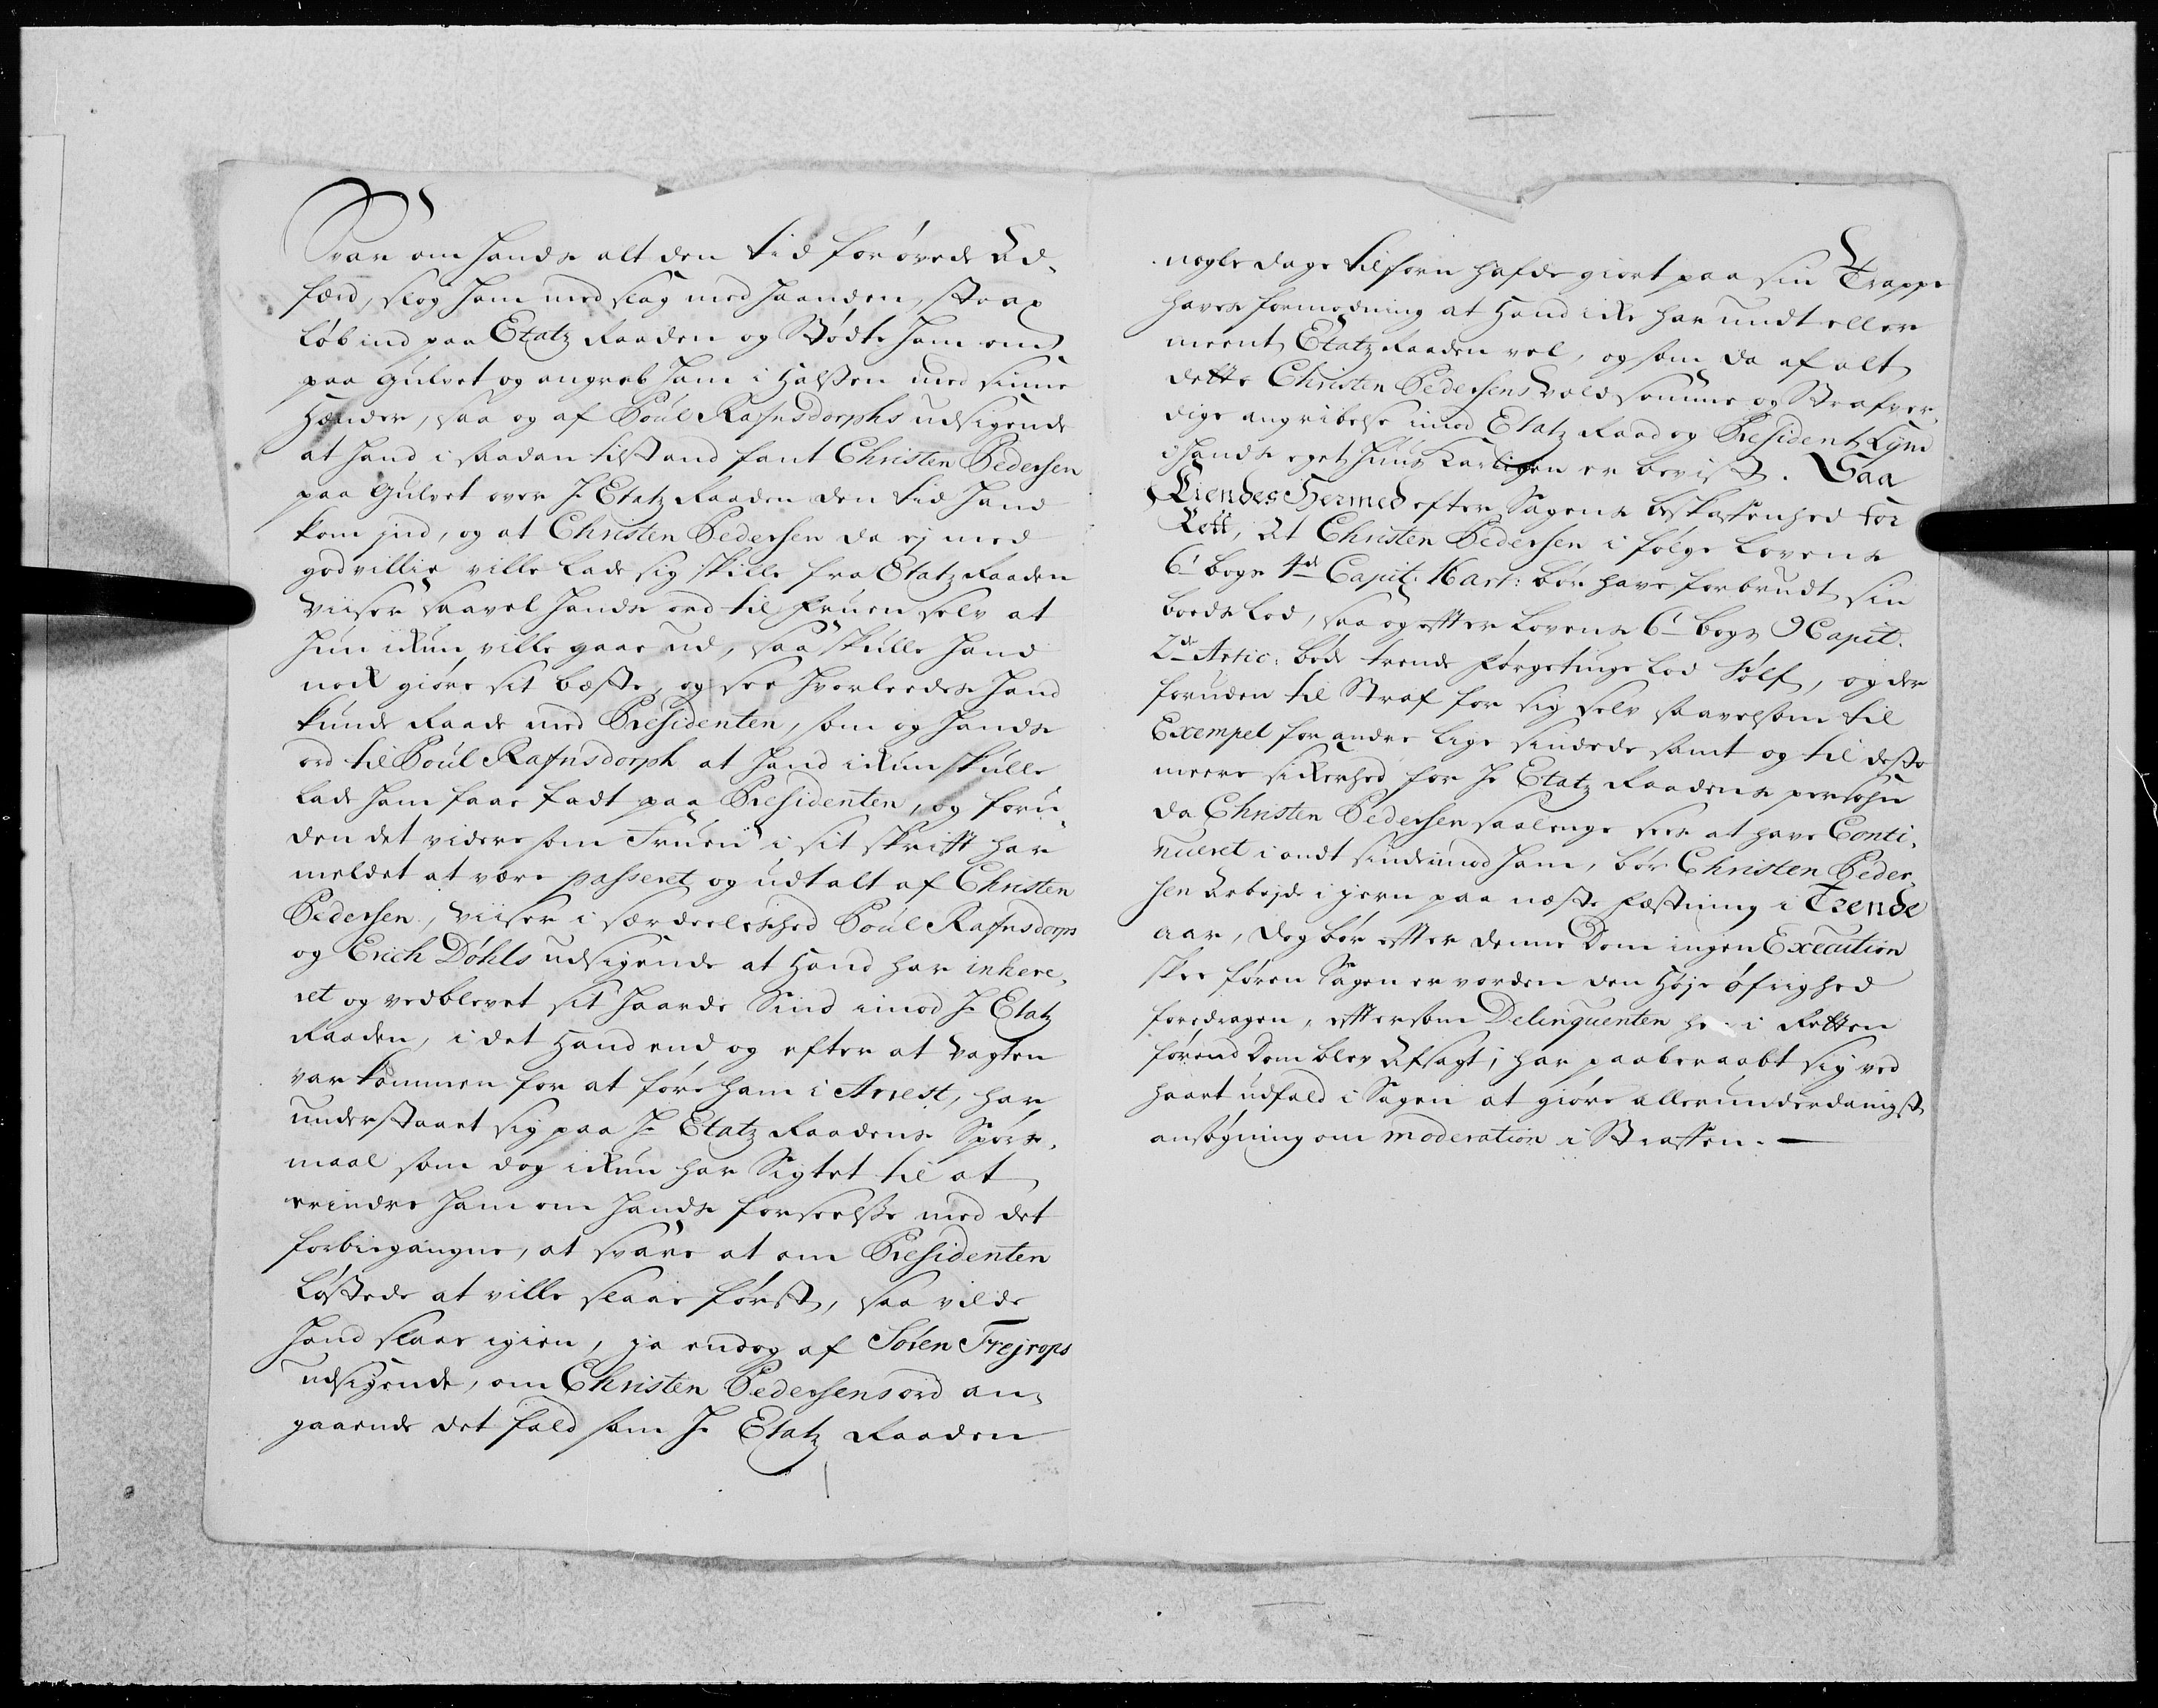 Svar om hands alt den tid forøvede Ad,
færd, slog ham med slag med haanden, strax
løb ind paa Etatz Raaden og Stødte ham om
paa gulvet og angreb ham i Halsen med sinne
Hænder, saa og af Poul Rafnsdorphs udsigende
at hand i saadan tilstand fant Christen Pedersen
paa Gulvet over Hr Etatz Raaden den tid hand
kom jnd, og at Christen Pedersen da ej med
godvillie ville lade sig skille fra Etatz Raaden
viiser saavel hands ord til Fruen selv at
hun ikun ville gaae ud, saa skulle hand
nock giøre sit beste, og see hvorleedes hand
kunde Raade med Presidenten, som og hands
ord til Poul Rafnsdorph at hand ikun skulle
lade ham faae fadt paa Presidenten, og foru,
den det videre som Fruen i sit skrift har
meldet at være passeret og udtalt af Christen
Pedersen, viiser i særdeelished Poul Rafnsdorps
og Erich Døhls udsigende at Hand har inhere,
ret og vedblevet sit haarde Sind imod Hr Etatz
Raaden, i det Hand end og efter at vagten
var kommen for at føre ham i Arrest, har
understaaet sig paa Hr Etatz Raadens Spørs,
maal som dog ikun har Sigtet til at
erindre ham om hands forseelse med det
forbiegangne, at svare at om Presidenten
løstede at ville slaae først, saa vilde
hand slaae igien, ja endog af Søren Frejrops
udsigende, om Christen Pedersens ord an,
gaaende det fald som Hr Etatz Raaden
nogle dage tilforn hafde giort paa sin Trappe
haves formodning at Hand icke har undt eller
meent Etatz Raaden vel, og som da af alt
dette Christen Pedersens voldsomme og Strafvær,
dige angribelse imod Etatz Raad og President Lÿm
i hands eget huus Karligen er beviist. Saa
Kiendes Hermed efter Sagens beskaffenhed for
Rett, At Christen Pedersen i følge Lovens
6te bogs 4de Capit: 16 art: bør have forbrudt sin
boeds lod, saa og efter Lovens 6te bogs 9 Capit:
2de Artic: bøde trende fyrgetinge lod Sølf, og der
foruden til Straf for sig selv saavelsom til
Exempel for andre lige sindede samt og til desto
meere sikerhed for Hr Etatz Raadens persohn
da Christen Pedersen saalenge sees at have Conti,
nueret i ondt sind imod ham, bør Christen Peder,
sen Arbejde i jern paa næste Fæstning i Trende
aar, dog bør efter denne Dom ingen Execution
skee føren Sagen er vorden den Høje øfrighed
foredragen, eftersom Delinquenten her i Retten
førend Dom blev Afsagt, har paaberaabt sig ved
haart udfald i Sagen at giøre allerunderdanigst
ansøgning om moderation i Straffen. —